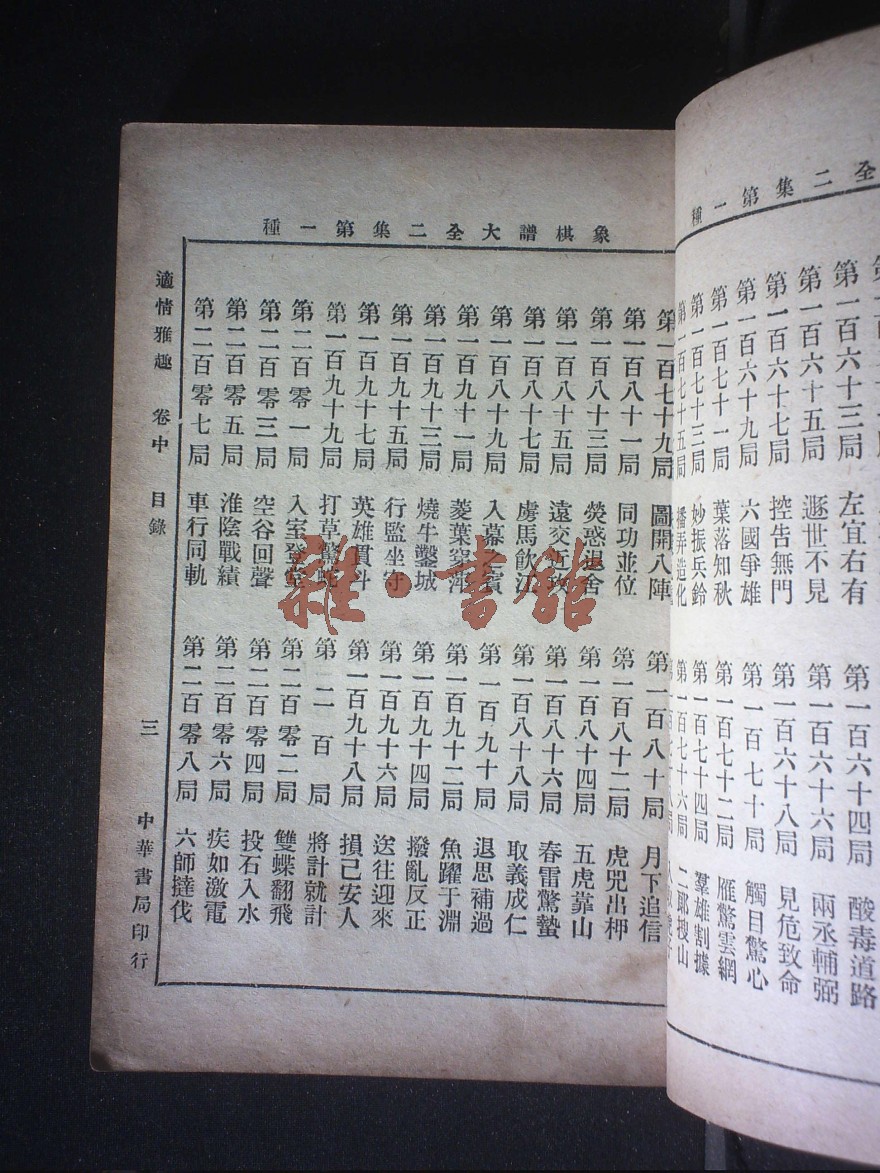 全二集第一種
第一百六十三局 左宜右有
第一百六十四局 酸毒道路
第一百六十五局 遯世不見
第一百六十六局 兩丞輔弼
第一百六十七局 控告無門
第一百六十八局 見危致命
第一百六十九局 六國爭雄
第一百七十局 觸目驚心
第一百七十一局 葉落知秋
第一百七十二局 雁驚雲網
第一百七十三局 妙振兵鈴
第一百七十四局 羣雄割據
第一百七十五局 播弄造化
第一百七十六局 二郎搜山
象棋譜大全二集第一種
第一百七十九局 圖開八陣
第一百八十局 月下追信
第一百八十一局 同功並位
第一百八十二局 虎兕出柙
第一百八十三局 熒惑退舍
第一百八十四局 五虎靠山
第一百八十五局 遠交近攻
第一百八十六局 春雷驚蟄
第一百八十七局 虜馬飲江
第一百八十八局 取義成仁
第一百八十九局 入幕之賓
第一百九十局 退思補過
第一百九十一局 菱葉穿萍
第一百九十二局 魚躍于淵
第一百九十三局 燒牛鑿城
第一百九十四局 撥亂反正
第一百九十五局 行監坐守
第一百九十六局 送往迎來
第一百九十七局 英雄貫斗
第一百九十八局 損己安人
第一百九十九局 打草驚蛇
第二百局 將計就計
第二百零一局 入室登堂
第二百零二局 雙蝶翻飛
第二百零三局 空谷回聲
第二百零四局 投石入水
第二百零五局 淮陰戰績
第二百零六局 疾如激電
第二百零七局 車行同軌
第二百零八局 六師撻伐
適情雅趣 卷中 目錄 三 中華書局印行
雜·書館